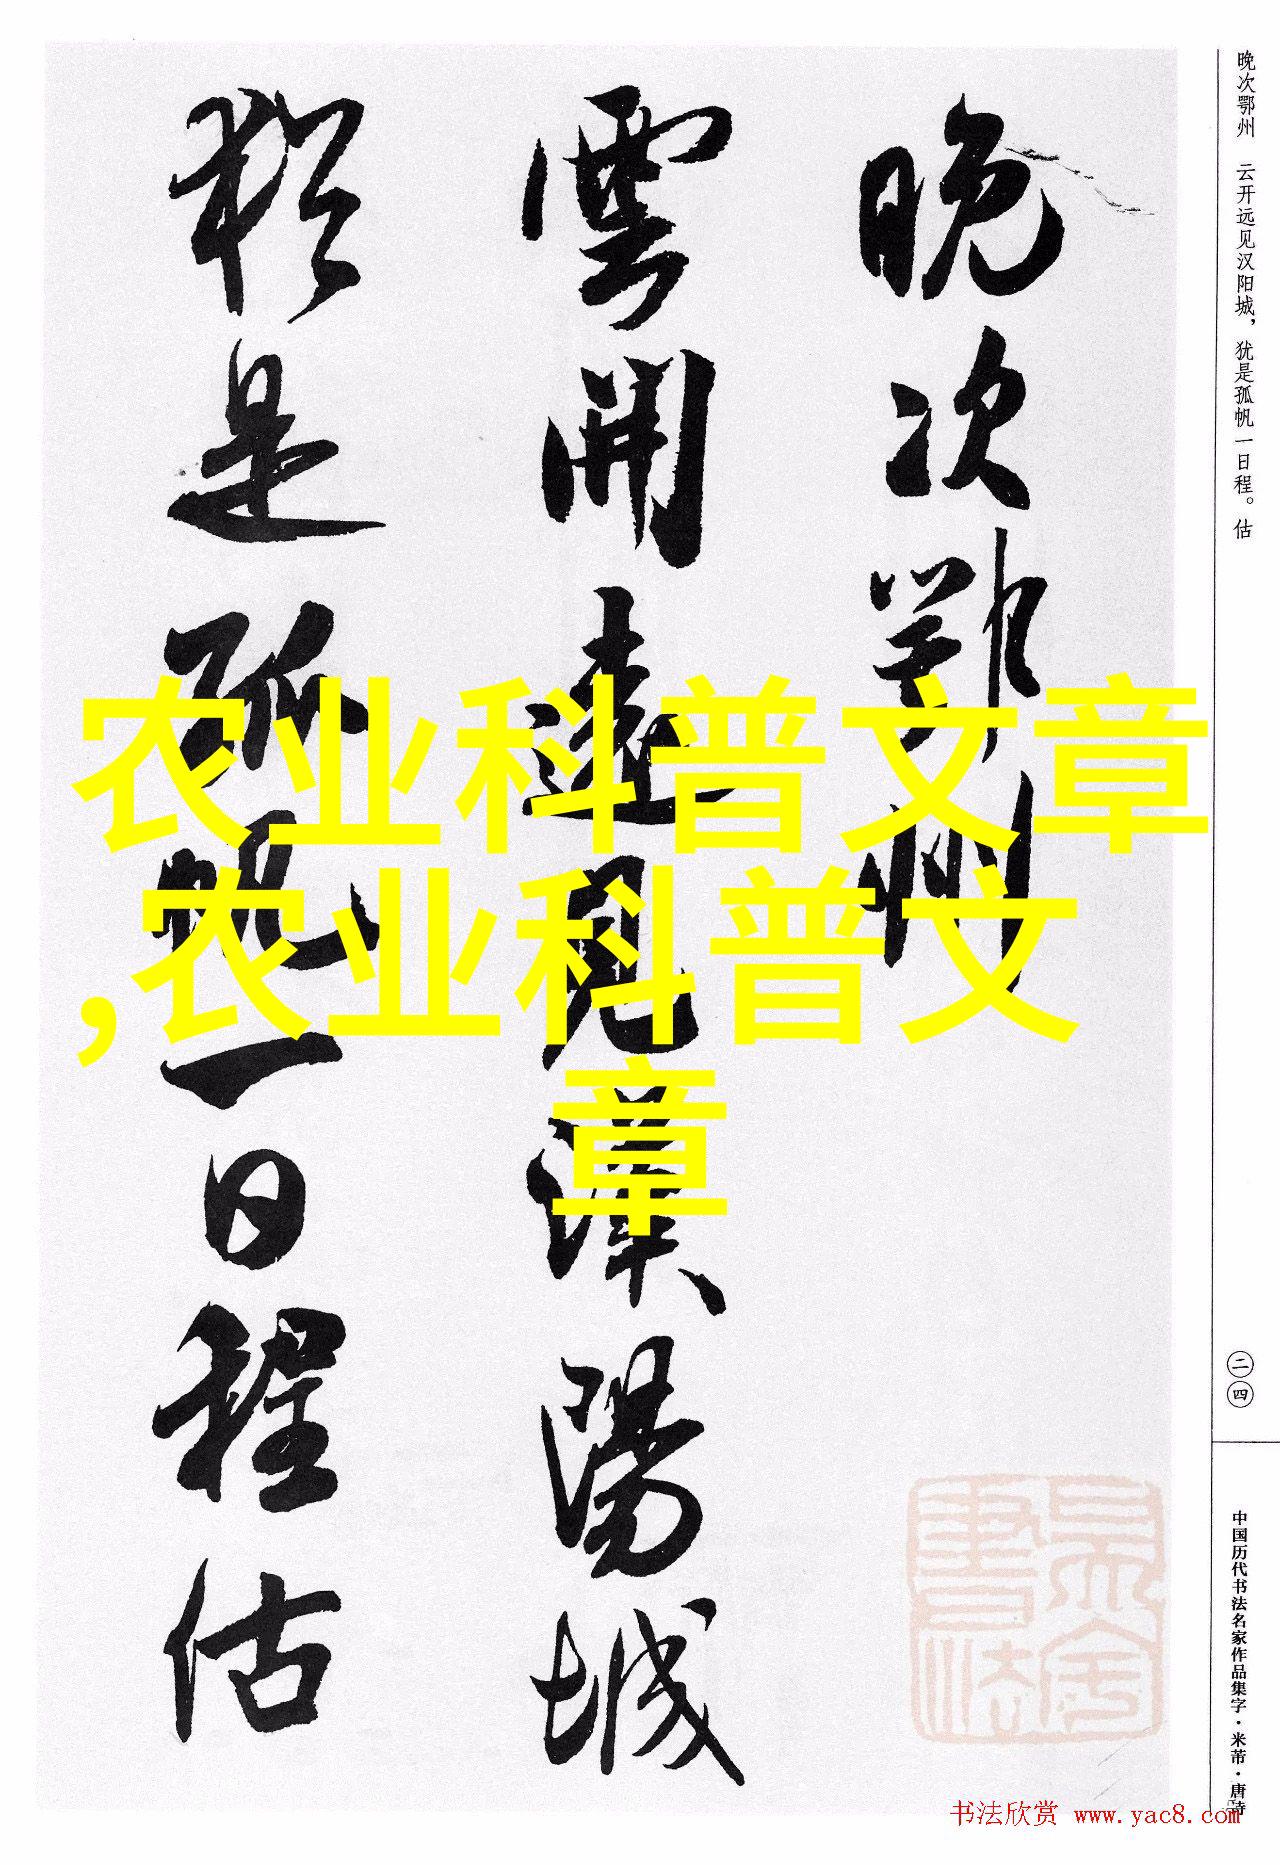 晚次鄂州
雲開遠見漢陽城
猶是孤帆一日程估
晚次鄂州 云开远见汉阳城，犹是孤帆一日程。估
二四
中国历代书法名家作品集字·米芾·唐诗
农业科普文章
,农业科普文
章
书法欣赏 www.yac8.com